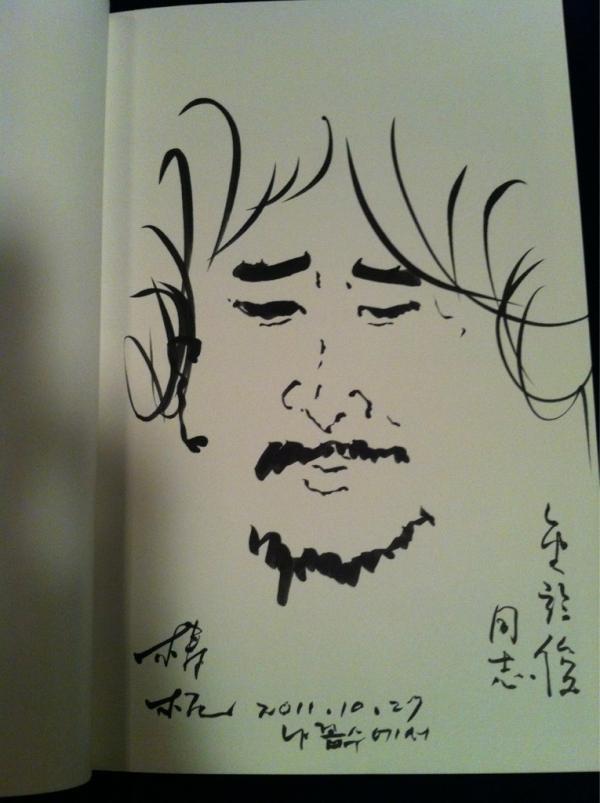 金於俊
同志
2011.10.27
나꼼수에서